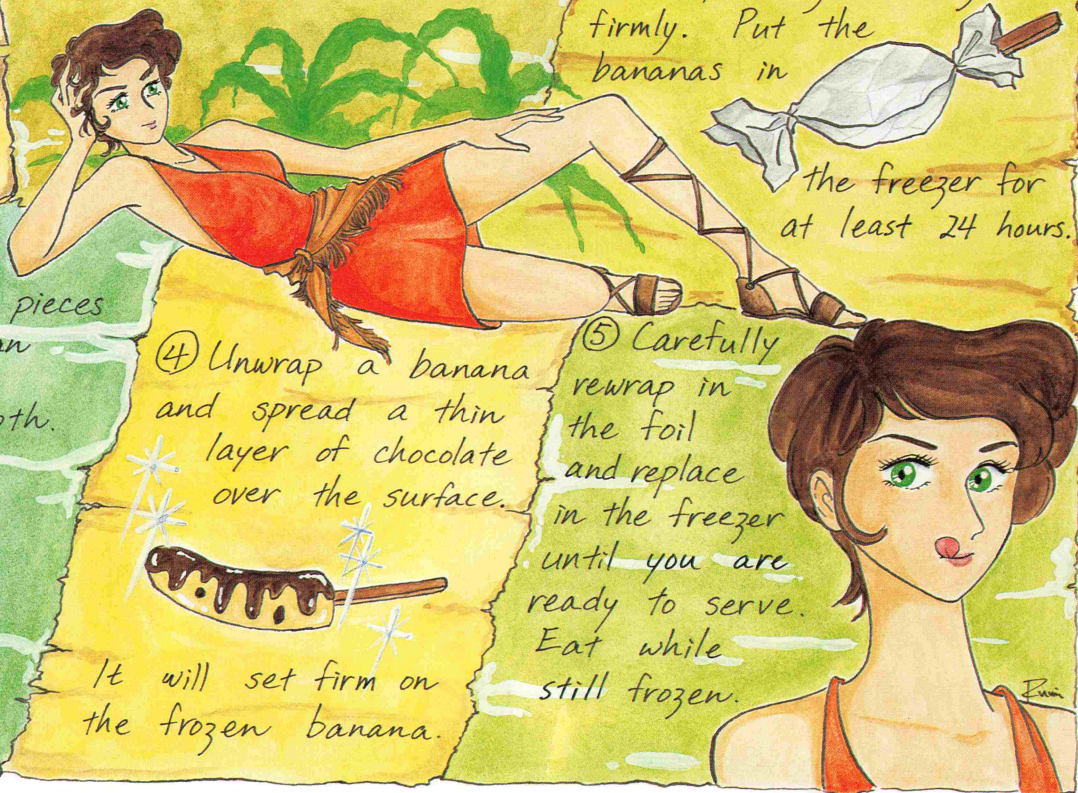 firmly. Put the
bananas in
the freezer for
at least 24 hours.
pieces
oth.
④ Unwrap a banana
and spread a thin
layer of chocolate
over the surface.
It will set firm on
the frozen banana.
⑤ Carefully
rewrap in
the foil
and replace
in the freezer
until you are
ready to serve.
Eat while
still frozen.